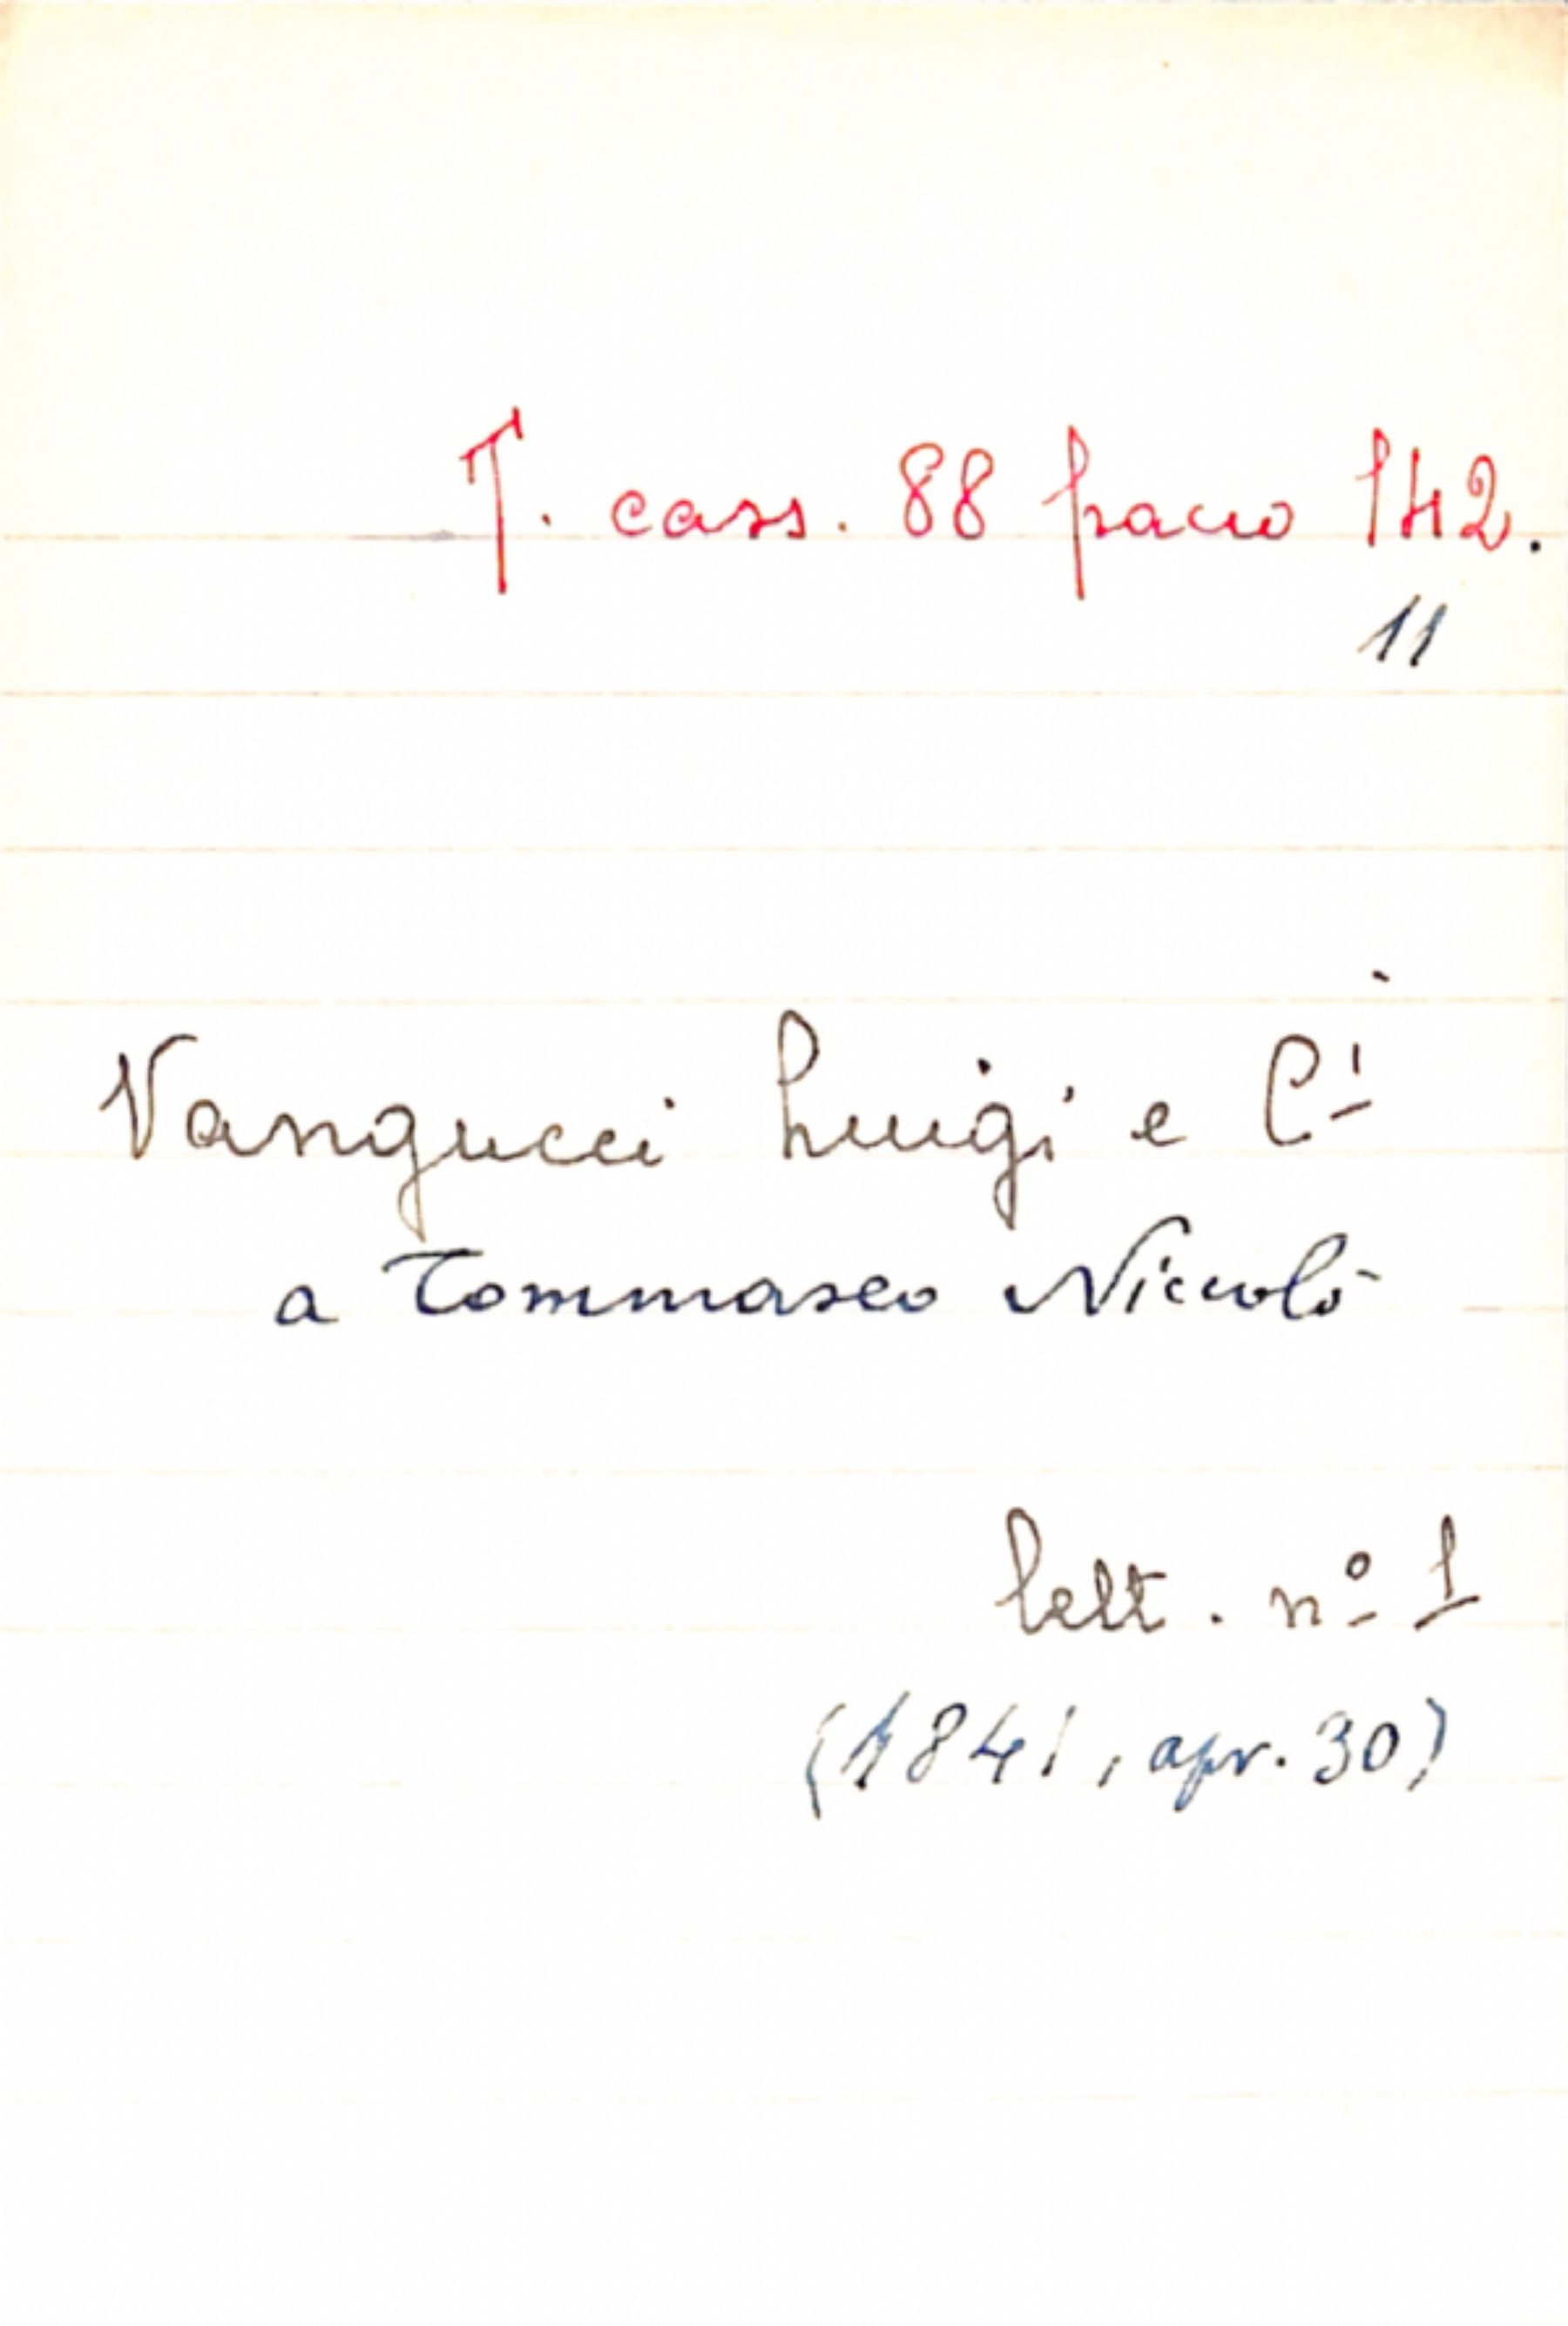 T. cass. 88 pacco 142.
11
Vangucci Luigi e Ci
a Tommaseo Niccolò
lett. nº 1
(1841, apr. 30)